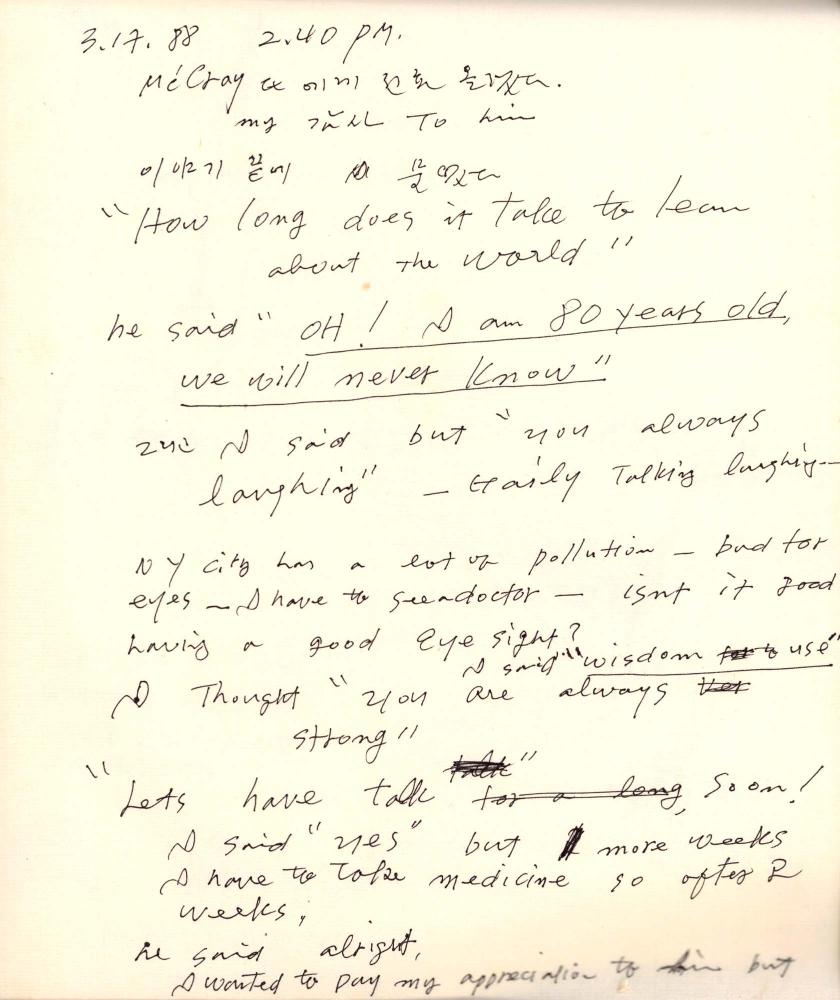 3.17.88 2.40 PM.
McCray 에게 전화 올렸다.
my 감사 To him
이야기 끝에 I 물었다
"How long does it take to learn
about the world"
he said " OH! I am 80 years old,
we will never know"
그래 I said but "you always
laughing" — Easily Talking laughing —
NY city has a lot of pollution — bad for
eyes — I have to see a doctor — isnt it good
having a good Eye sight?
I said "wisdom for to use"
I Thought "you are always
strong"
"Lets have talk talk" for a long, soon!
I said "yes" but more weeks
I have to Take medicine so after 2
weeks,
he said alright,
I wanted to pay my appreciation to him but